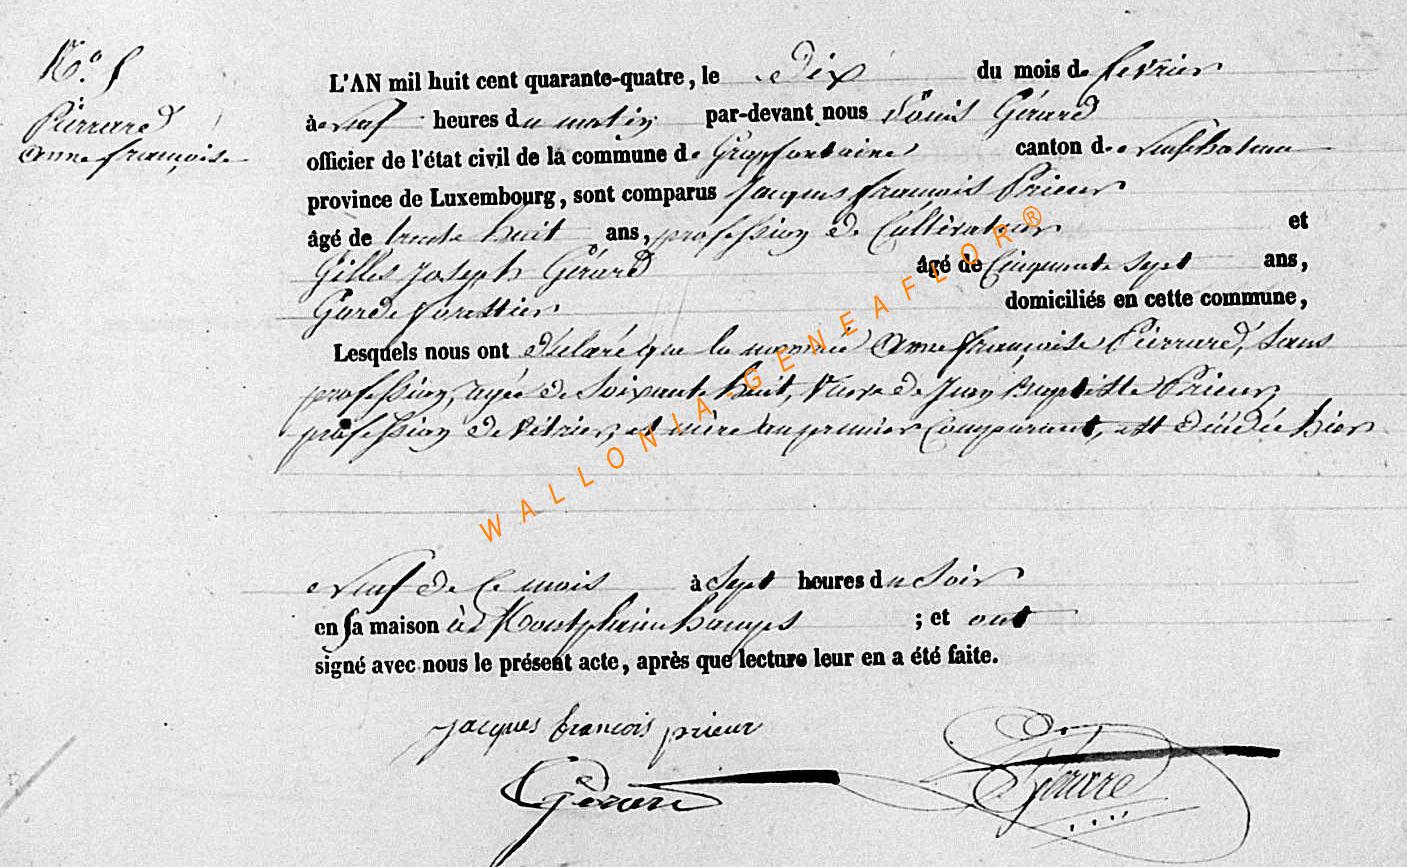 N.° 5
Pierrard
Anne françoise
L'AN mil huit cent quarante-quatre, le Dix du mois de fevrier
à neuf heures du matin par-devant nous Louis Gérard
officier de l'état civil de la commune de Grapfontaine canton de neufchateau
province de Luxembourg, sont comparus Jacques françois Prieur
âgé de trente huit ans, profession de Cultivateur et
Gilles Joseph Gérard âgé de Cinquante sept ans,
Garde forestier domiciliés en cette commune,
Lesquels nous ont déclaré que la nommée Anne françoise Pierrard, sans
profession, agée de Soixante huit, Veuve de Jean Baptiste Prieur,
profession de et mère du premier Comparant, est décédée hier
neuf de Ce mois à Sept heures du Soir
en sa maison ; et ont
signé avec nous le présent acte, après que lecture leur en a été faite.
jacques francois prieur
Gérard
Gérard
WALLONIA GENEAFLOR®